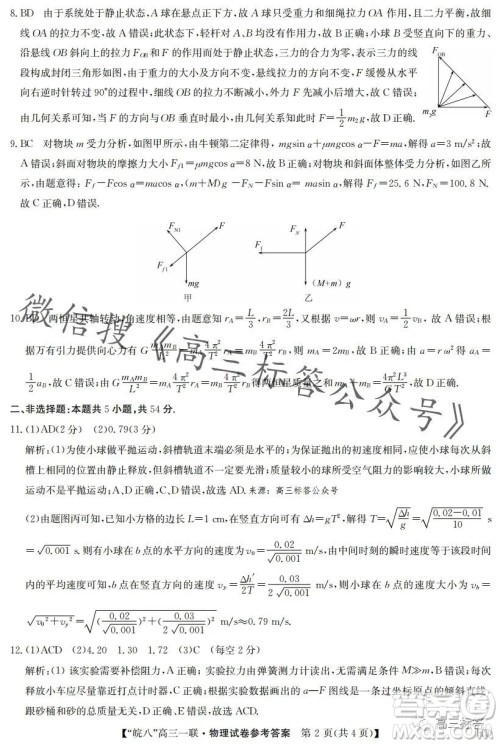 8. BD　由于系统处于静止状态,A 球在悬点正下方,故 A 球只受重力和细绳拉力 OA 作用,且二力平衡,故细
线 OA 的拉力不变,故 A 错误;此状态下,轻杆对 A、B 均没有作用力,故 B 正确;小球 B 受竖直向下的重力、
沿悬线 OB 斜向上的拉力 FOB 和 F 的作用而处于静止状态,三力的合力为零,表示三力的线
段构成封闭三角形如图,由于重力的大小及方向不变,悬线拉力的方向不变,F 缓慢从水平
向右逆时针转过 90°的过程中,细线 OB 的拉力不断减小,外力 F 先减小后增大,故 C 错误;
由几何关系可知,当 F 的方向与 OB 垂直时最小,由几何关系知此时 F=1/2 m₂g,故 D 正确.
FOB
F
m₂g
9. BC　对物块 m 受力分析,如图甲所示,由牛顿第二定律得,mgsin α+μmgcos α−F=ma,解得 a=3 m/s²;故
A 错误;斜面对物块的摩擦力大小 Ff1=μmgcos α=8 N,故 B 正确;对物块和斜面体整体受力分析,如图乙所
示,由题意得:Ff−Fcos α=macos α,(m+M)g−FN−Fsin α= masin α,解得 Ff=25.6 N,FN=100.8 N.
故 C 正确,D 错误.
FN1
F
Ff1
mg
甲
FN
F
Ff
(M+m)g
乙
10. 两恒星共轴转动,角速度相等,由题意知 rA=L/3,rB=2L/3,又根据 v=ωr,则 vA=1/2 vB,故 A 错误;根
据万有引力提供向心力有 G mAmB/L²=mA 4π²/T² rA=mB 4π²/T² rB,则 mA=2mB,故 B 正确;由 a=rω² 得 aA=
1/2 aB,故 C 错误;由 G mAmB/L²=mA 4π²/T² rA=mB 4π²/T² rB 得两恒星质量之和为 mA+mB=4π²L³/GT²,故 D 正确.
二、非选择题:本题共 5 小题,共 54 分.
11. (1)AD(2 分)　(2)0.79(3 分)
解析:(1)为使小球做平抛运动,斜槽轨道末端必须是水平的;为保证抛出的初速度相同,应使小球每次从斜
槽上相同的位置由静止释放,但斜槽不一定要光滑;小球所受空气阻力的影响较小,不是导致小球的运动不
是平抛运动;A、D 正确,B、C 错误,故选 AD. 来源：高三标答公众号
(2)由题图丙可知,已知小方格的边长 L=1 cm,在竖直方向可有 Δh=gT²,解得 T=√(Δh/g)=√((0.02−0.01)/10) s
=√0.001 s.则有小球在 b 点的水平方向的速度为 v₀=0.02/√0.001 m/s,由中间时刻的瞬时速度等于该段时间
内的平均速度,可知小球在 b 点在竖直方向的速度 vy=Δh′/2T=0.03/(2√0.001) m/s,则有小球在 b 点的速度为 v=
√(v₀²+vy²)=√((0.02/√0.001)²+(0.03/(2√0.001))²) m/s≈0.79 m/s.
12. (1)ACD　(2)4.20　1.30　1.72　(3)C　(每空 2 分)
解析:(1)该实验需要补偿阻力,A 正确;实验拉力由弹簧测力计读出,无需满足条件 M≫m,B 错误;每次
释放小车应尽量靠近打点计时器,C 正确;根据实验数据画出的 a−F 图线是一条过坐标原点的倾斜直线,
跟砂桶和砂的总质量大小无关,D 正确.故选 ACD.
“皖八”高三一联·物理试卷参考答案　第 2 页(共 4 页)
微信搜《高三标答公众号》